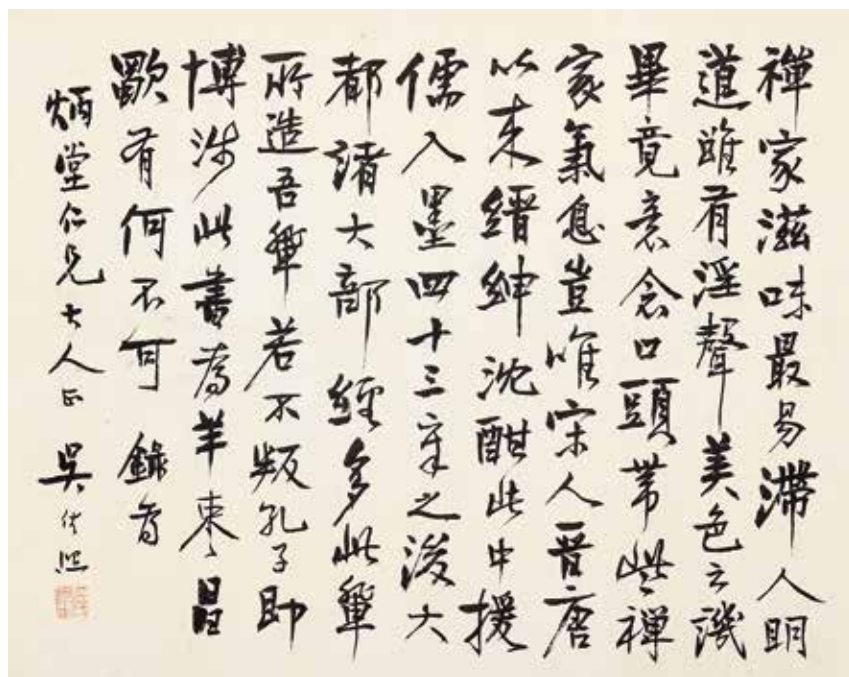 禪家滋味最易滯人明
道雖有淫聲美色之譏
畢竟意念口頭帶些禪
家氣息豈唯宋人晉唐
以來縉紳沈酣此中援
儒入墨四十三章之後大
都諸大部經多此輩
所造吾輩若不叛孔子即
博涉此書為羊棗昌
歜有何不可 錄為
炳堂仁兄大人正 吳